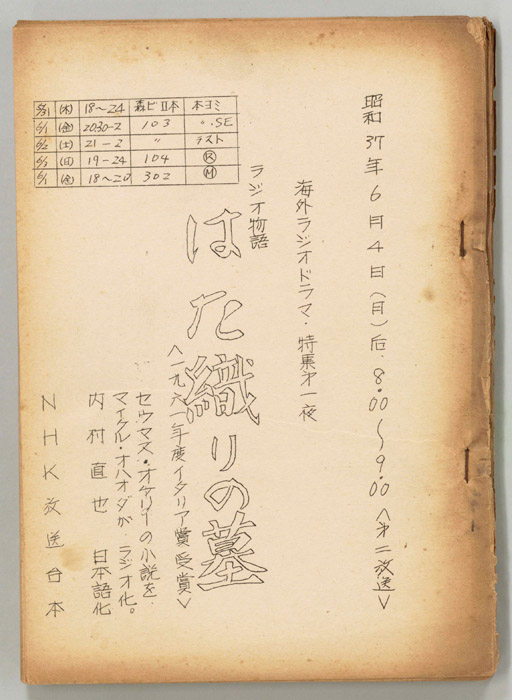 昭和37年6月4日(月)后.8.00〜9.00〈第二放送〉
海外ラジオドラマ・特集第一夜
ラジオ物語
はた織りの墓
〈一九六一年度イタリア賞受賞〉
セウマス・オケリーの小説を
マイケル・オハオダが ラジオ化。
内村直也 日本語化
NHK放送台本
5/31 (木) 18〜24 森ビⅡ本 本ヨミ
6/1 (金) 2030-2 103 〃.SE
6/2 (土) 21-2 〃 テスト
6/3 (日) 19-24 104 Ⓚ
6/1 (金) 18〜20 302 Ⓜ